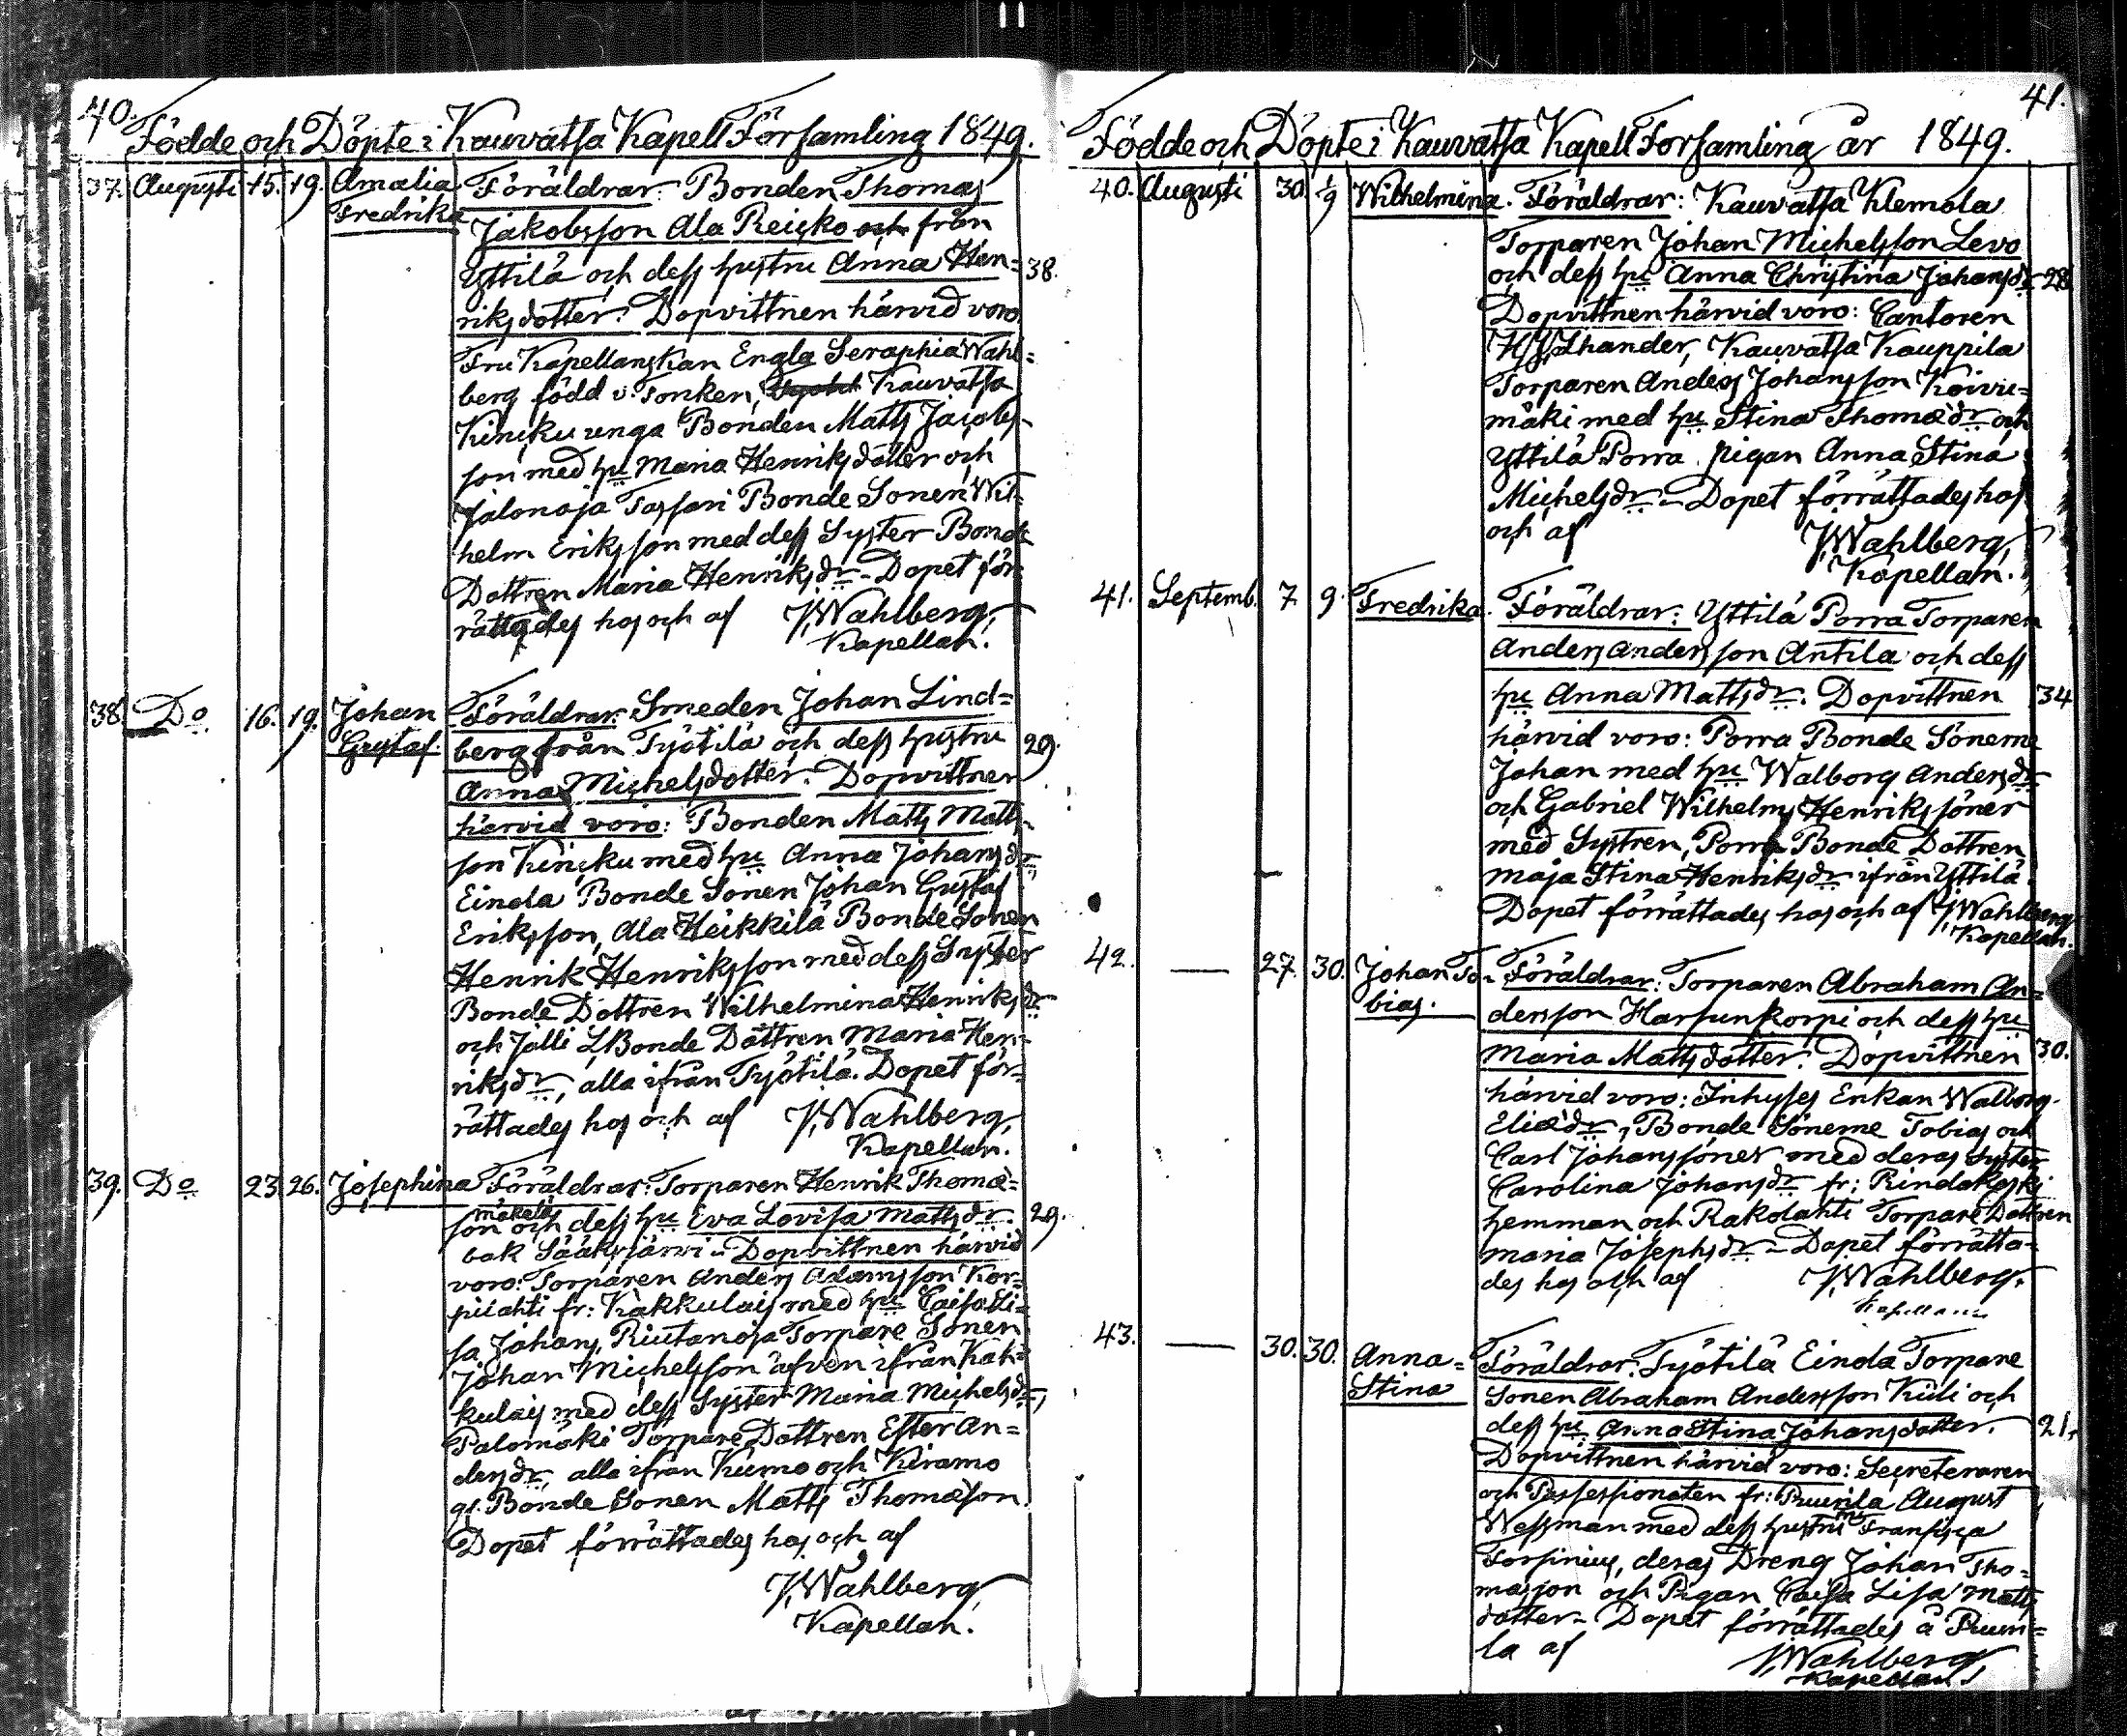 40.
Födde och Döpte i Kauvatsa Kapell Församling 1849.
37. Augusti 15. 19. Amalia Fredrika
Föräldrar: Bonden Thomas
Jakobsson Ala Reisko och från
Yttilä och dess hustru Anna Hen= 38.
riksdotter. Dopvittnen härvid voro
Fru Kapellanskan Engla Seraphia Wahl=
berg född v. Konken, Kauvatsa
Kinsku unga Bonden Matts Jacobs-
son med hu Maria Henriksdotter och
Jalonoja Tassari Bonde Sonen Wil-
helm Eriksson med dess Syster Bonde
Dottren Maria Henriksdr. - Dopet för-
rättades hos och af J. Wahlberg,
Kapellan.
38. Do 16. 19. Johan Gustaf.
Föräldrar: Smeden Johan Lind=
berg från Työtilä och dess hustru 29.
Anna Michelsdotter. Dopvittnen
härvid voro: Bonden Matts Matts-
son Kinsku med hu Anna Johansdr
Einola Bonde Sonen Johan Gustaf
Eriksson, Ala Heikkilä Bonde Sonen
Henrik Henriksson med dess Syster
Bonde Dottren Wilhelmina Henriksdr
och Jälli Bonde Dottren Maria Hen-
riksdr, alla ifrån Työtilä. Dopet för-
rättades hos och af J. Wahlberg,
Kapellan.
39. Do 23. 26. Josephina
Föräldrar: Torparen Henrik Thomæ=
son Mäkelä och dess hu Eva Lovisa Mattsdr. 29.
bak Sääksjärvi - Dopvittnen härvid
voro: Torparen Anders Adamsson Kor-
pilahti fr: Kakkulais med hu Caisa Li-
sa Johans, Riutanoja Torpare Sonen
Johan Michelsson äfven ifrån Kak-
kulais med dess Syster Maria Michelsdr,
Palomäki Torpare Dottren Ester An=
dersdr, alla ifrån Kumo och Kiramo
gl. Bonde Sonen Matts Thomæson.
Dopet förrättades hos och af
J. Wahlberg,
Kapellan.
41.
Födde och Döpte i Kauvatsa Kapell Församling år 1849.
40. Augusti 30. 1/9 Wilhelmina.
Föräldrar: Kauvatsa Klemola
Torparen Johan Michelsson Levo
och dess hu Anna Christina Johansdr 28
Dopvittnen härvid voro: Cantoren
Lhander, Kauvatsa Kauppila
Torparen Anders Johansson Koivu=
mäki med hu Stina Thomædr och
Yttilä Porra pigan Anna Stina
Michelsdr. - Dopet förrättades hos
och af J. Wahlberg,
Kapellan.
41. Septemb. 7 9. Fredrika.
Föräldrar: Yttilä Porra Torparen
Anders Andersson Antila och dess
hu Anna Mattsdr. Dopvittnen 34
härvid voro: Porra Bonde Sönerne
Johan med hu Walborg Andersdr
och Gabriel Wilhelms Henrikssöner
med Systren, Porra Bonde Dottren
Maja Stina Henriksdr ifrån Yttilä.
Dopet förrättades hos och af J. Wahlberg
Kapellan.
42. — 27. 30. Johan Tobias.
Föräldrar: Torparen Abraham An=
dersson Harsunkorpi och dess hu
Maria Mattsdotter. Dopvittnen 30.
härvid voro: Inhyses Enkan Walborg
Eliædr, Bonde Sönerne Tobias och
Carl Johanssöner med deras Syster
Carolina Johansdr fr: Rindakoski
hemman och Rakolahti Torpare Dottren
Maria Josephsdr - Dopet förrätta-
des hos och af J. Wahlberg,
Kapellan
43. — 30. 30. Anna= Stina
Föräldrar: Työtilä Einola Torpare
Sonen Abraham Andersson Kuli och
dess hu Anna Stina Johansdotter. 21.
Dopvittnen härvid voro: Secreteraren
och Possessionaten fr: Puurila August
Wessman med dess hustru Fransisca
Forsinius, deras Dreng Johan Tho=
masson och Pigan Caisa Lisa Matts
dotter - Dopet förrättades å Puuri=
la af J. Wahlberg
Kapellan.